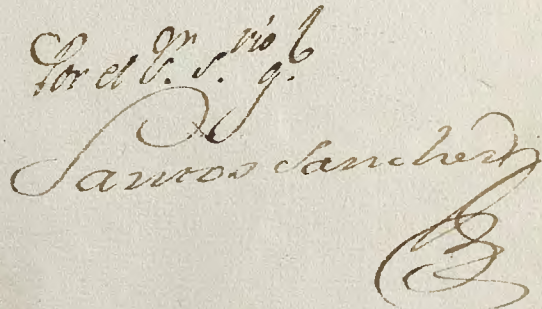 Por el S.r S.rio g.l
Santos Sanchez